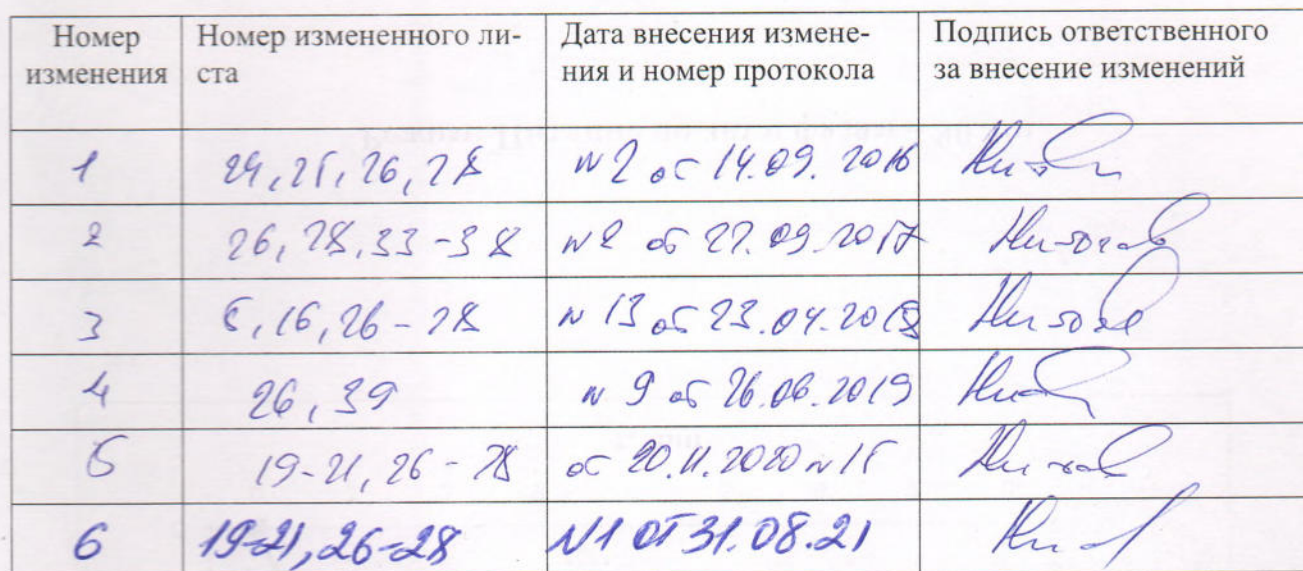 Номер изменения Номер измененного ли-ста Дата внесения измене-ния и номер протокола Подпись ответственного за внесение изменений
1 24, 25, 26, 28 № 2 от 14.09.2016
2 26, 28, 33-38 № 2 от 27.09.2017
3 6, 16, 26-28 № 13 от 23.04.2018
4 26, 39 № 9 от 26.06.2019
5 19-21, 26-28 от 20.11.2020 № 15
6 19-21, 26-28 №1 от 31.08.21